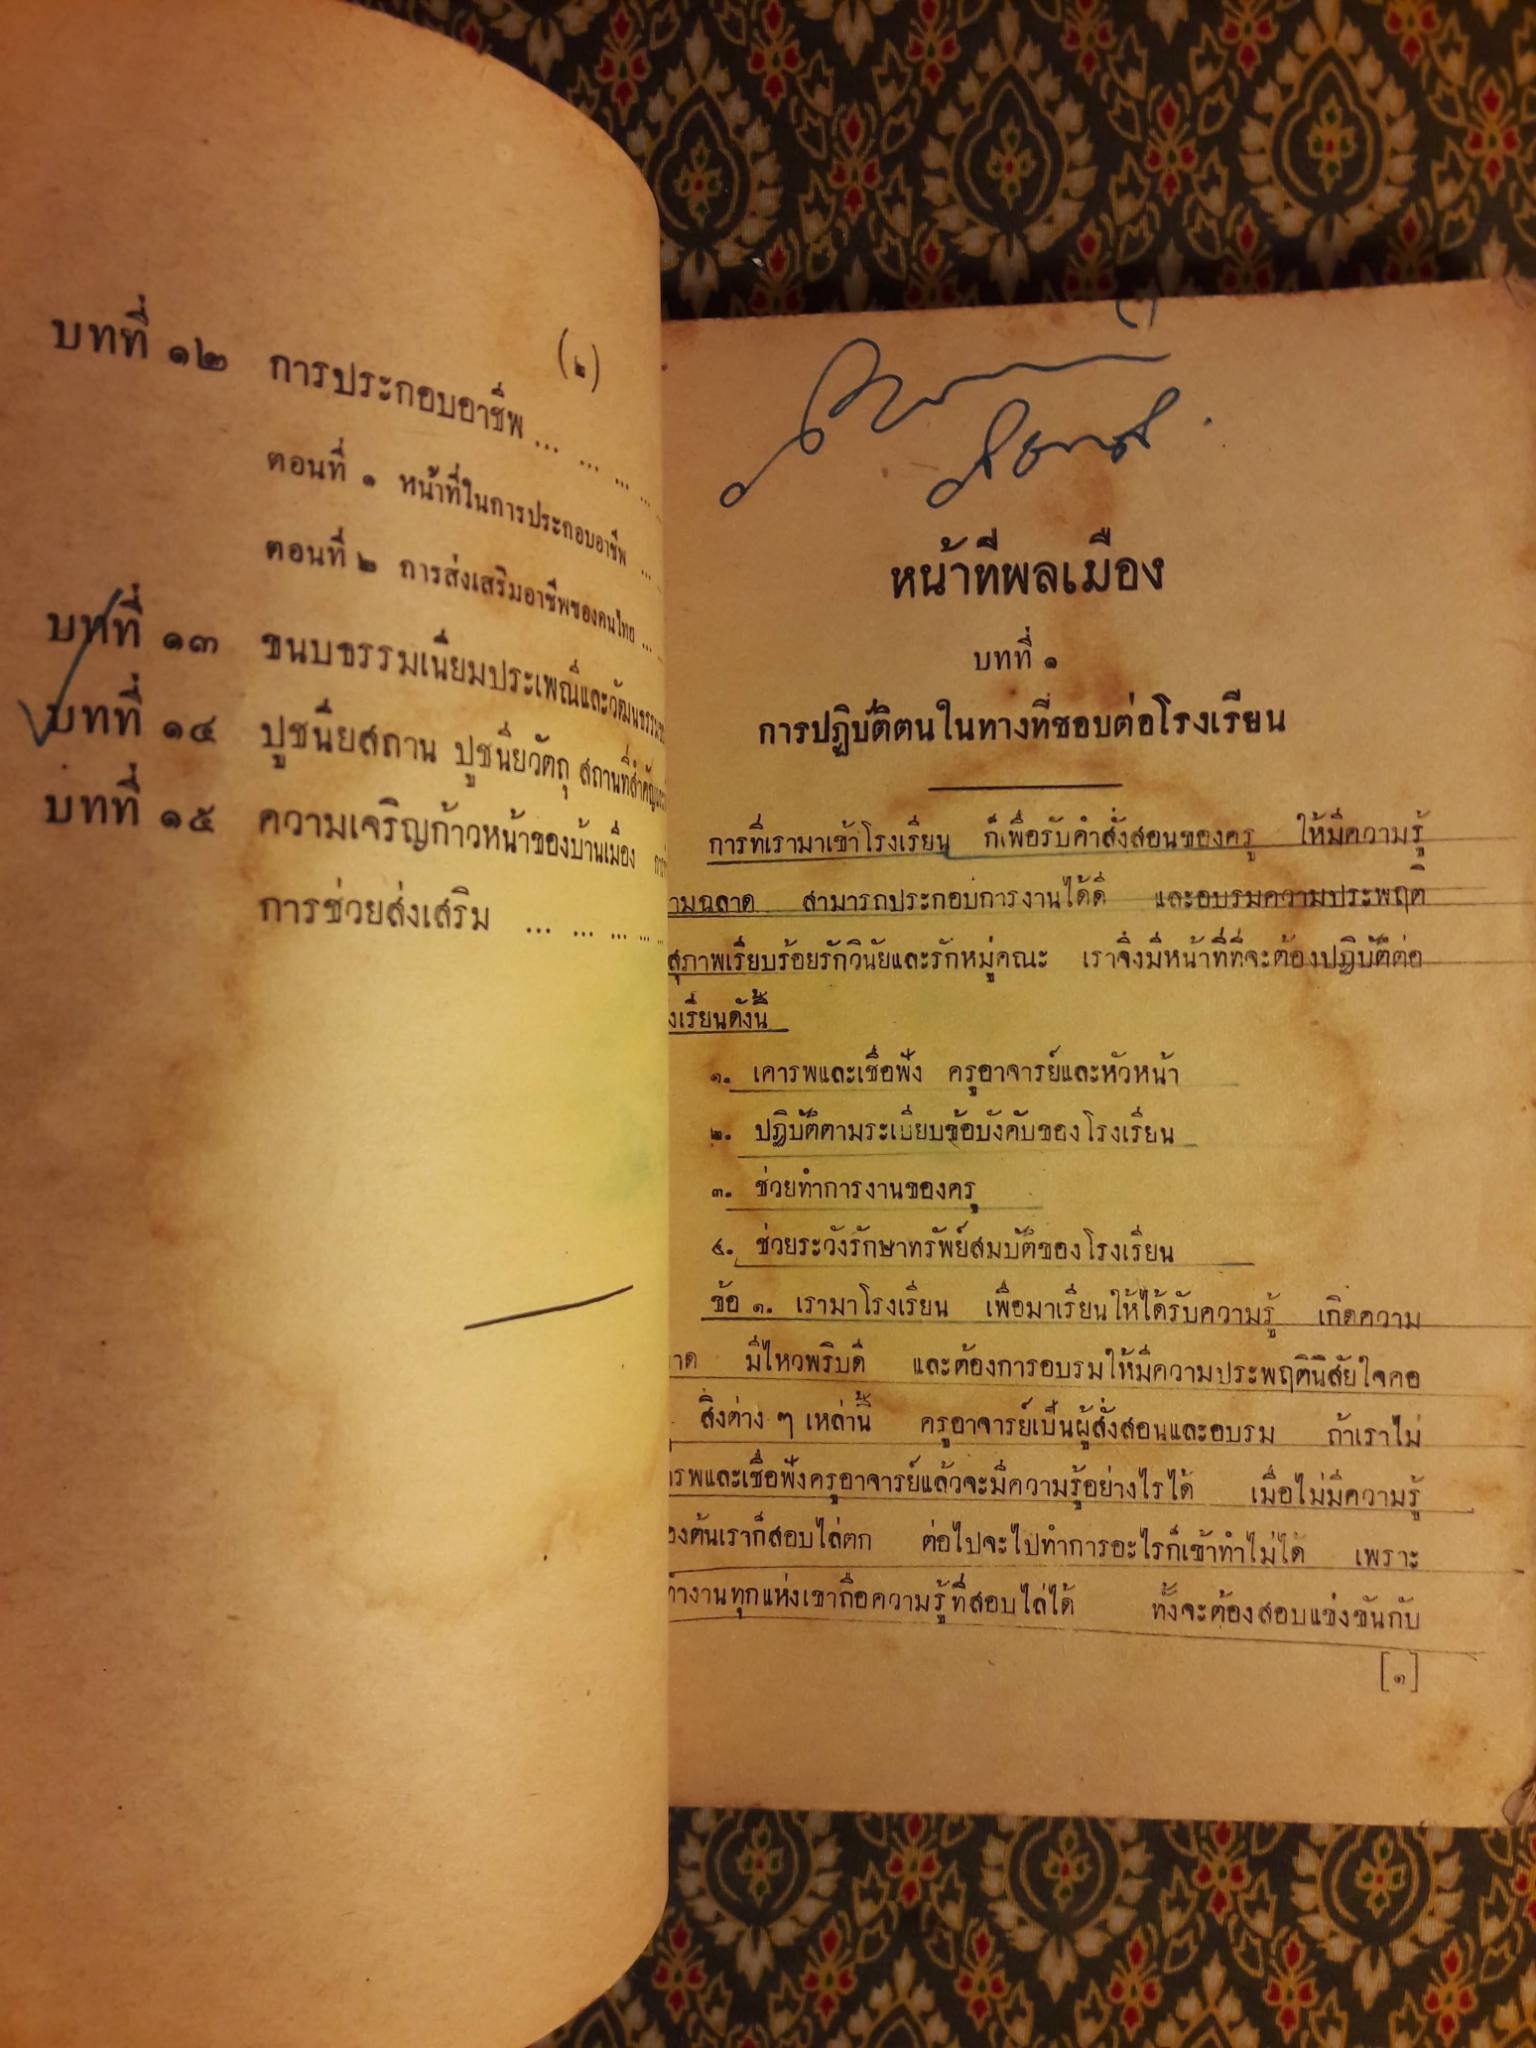 (๒)
บทที่ ๑๒ การประกอบอาชีพ ... ... ... ...
ตอนที่ ๑ หน้าที่ในการประกอบอาชีพ ...
ตอนที่ ๒ การส่งเสริมอาชีพของคนไทย ...
บทที่ ๑๓ ขนบธรรมเนียมประเพณีและวัฒนธรรม
บทที่ ๑๔ ปูชนียสถาน ปูชนียวัตถุ สถานที่สำคัญ
บทที่ ๑๕ ความเจริญก้าวหน้าของบ้านเมือง
การช่วยส่งเสริม ... ... ... ... ...
หน้าที่พลเมือง
บทที่ ๑
การปฏิบัติตนในทางที่ชอบต่อโรงเรียน
การที่เรามาเข้าโรงเรียน ก็เพื่อรับคำสั่งสอนของครู ให้มีความรู้
ามฉลาด สามารถประกอบการงานได้ดี และอบรมความประพฤติ
สุภาพเรียบร้อยรักวินัยและรักหมู่คณะ เราจึงมีหน้าที่ที่จะต้องปฏิบัติต่อ
งเรียนดังนี้
๑. เคารพและเชื่อฟัง ครูอาจารย์และหัวหน้า
๒. ปฏิบัติตามระเบียบข้อบังคับของโรงเรียน
๓. ช่วยทำการงานของครู
๔. ช่วยระวังรักษาทรัพย์สมบัติของโรงเรียน
ข้อ ๑. เรามาโรงเรียน เพื่อมาเรียนให้ได้รับความรู้ เกิดความ
าด มีไหวพริบดี และต้องการอบรมให้มีความประพฤตินิสัยใจคอ
สิ่งต่าง ๆ เหล่านี้ ครูอาจารย์เป็นผู้สั่งสอนและอบรม ถ้าเราไม่
ารพและเชื่อฟังครูอาจารย์แล้วจะมีความรู้อย่างไรได้ เมื่อไม่มีความรู้
องต้นเราก็สอบไล่ตก ต่อไปจะไปทำการอะไรก็เข้าทำไม่ได้ เพราะ
ทำงานทุกแห่งเขาถือความรู้ที่สอบไล่ได้ ทั้งจะต้องสอบแข่งขันกับ
[๑]